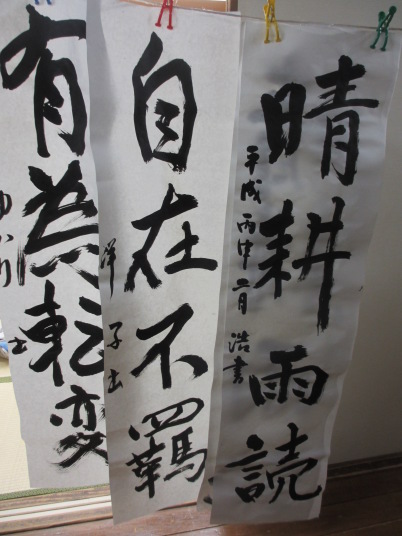 晴耕雨読
平成丙申二月 浩書
自在不羈
洋子书
有為転変